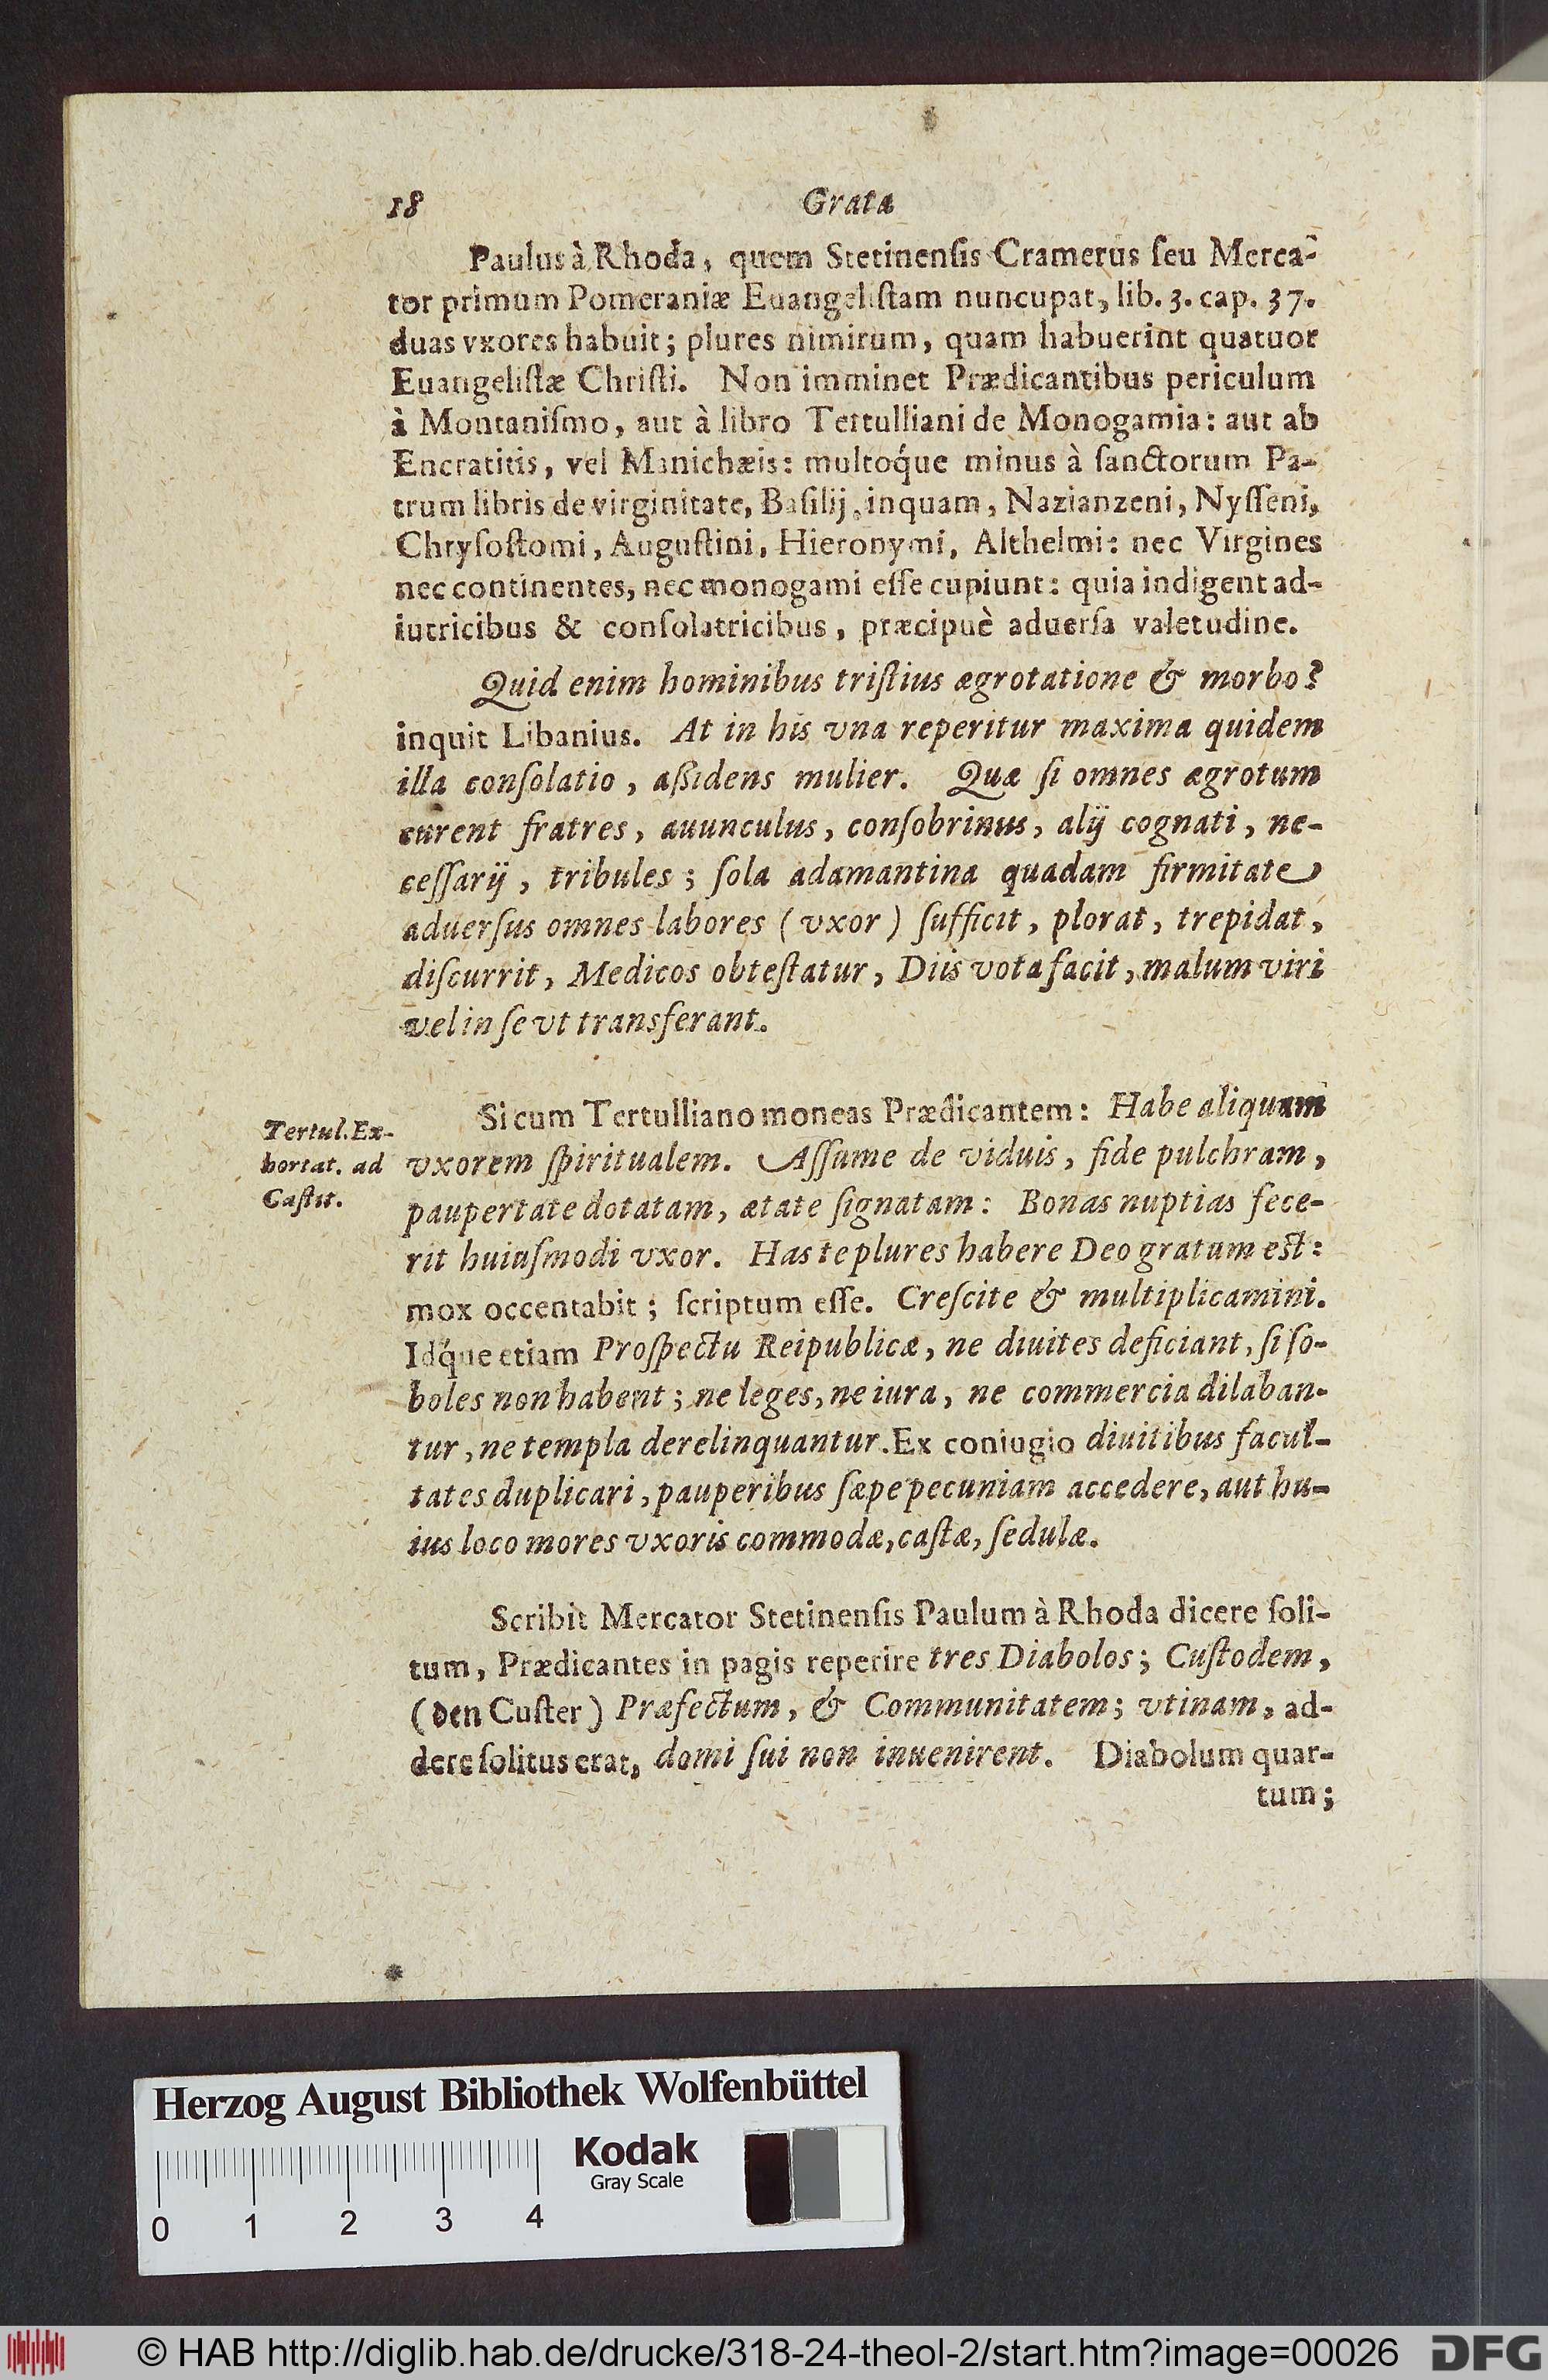 18 Grata
Paulus à Rhoda, quem Stetinenſis Cramerus ſeu Merca-
tor primum Pomeraniæ Euangeliſtam nuncupat, lib. 3. cap. 37.
duas vxores habuit; plures nimirum, quam habuerint quatuor
Euangeliſtæ Chriſti. Non imminet Prædicantibus periculum
à Montaniſmo, aut à libro Tertulliani de Monogamia: aut ab
Encratitis, vel Manichæis: multoq́ue minus à ſanctorum Pa-
trum libris de virginitate, Baſilij, inquam, Nazianzeni, Nyſſeni,
Chryſoſtomi, Auguſtini, Hieronymi, Althelmi: nec Virgines
nec continentes, nec monogami eſſe cupiunt: quia indigent ad-
iutricibus & conſolatricibus, præcipuè aduerſa valetudine.
Quid enim hominibus triſtius ægrotatione & morbo?
inquit Libanius. At in his vna reperitur maxima quidem
illa conſolatio, aßidens mulier. Quæ ſi omnes ægrotum
curent fratres, auunculus, conſobrinus, alij cognati, ne-
ceſſarij, tribules; ſola adamantina quadam firmitate
aduerſus omnes labores (vxor) ſufficit, plorat, trepidat,
diſcurrit, Medicos obteſtatur, Diis vota facit, malum viri
vel in ſe vt transferant.
Tertul. Ex-
hortat. ad
Caſtit.
Si cum Tertulliano moneas Prædicantem: Habe aliquam
vxorem ſpiritualem. Aſſume de viduis, fide pulchram,
paupertate dotatam, ætate ſignatam: Bonas nuptias fece-
rit huiuſmodi vxor. Has te plures habere Deo gratum est:
mox occentabit; ſcriptum eſſe. Creſcite & multiplicamini.
Idq́ue etiam Proſpectu Reipublicæ, ne diuites deficiant, ſi ſo-
boles non habent; ne leges, ne iura, ne commercia dilaban-
tur, ne templa derelinquantur. Ex coniugio diuitibus facul-
tates duplicari, pauperibus ſæpe pecuniam accedere, aut hu-
ius loco mores vxoris commodæ, caſtæ, ſedulæ.
Scribit Mercator Stetinenſis Paulum à Rhoda dicere ſoli-
tum, Prædicantes in pagis reperire tres Diabolos; Cuſtodem,
(den Cuſter) Præfectum, & Communitatem; vtinam, ad-
dere ſolitus erat, domi ſui non inuenirent. Diabolum quar-
tum;
Herzog August Bibliothek Wolfenbüttel
Kodak
Gray Scale
0 1 2 3 4
© HAB http://diglib.hab.de/drucke/318-24-theol-2/start.htm?image=00026
DFG